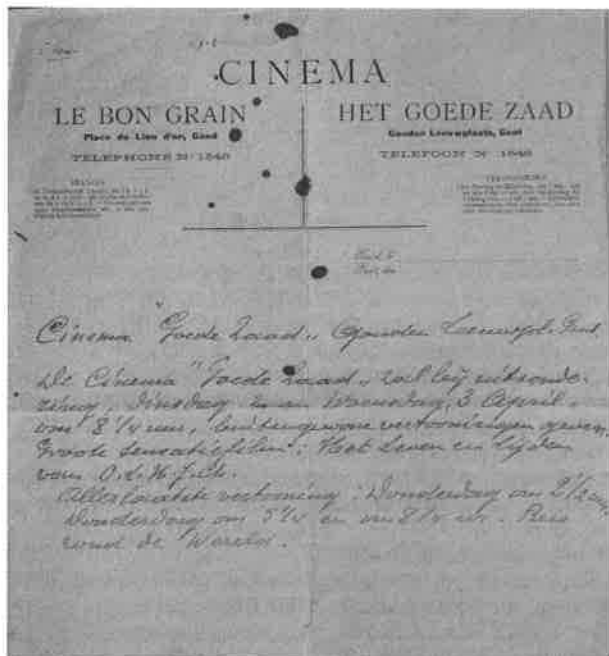 CINEMA
LE BON GRAIN
Place du Lion d'or, Gand
TELEPHONE N° 1546
HET GOEDE ZAAD
Gouden Leeuwplaats, Gent
TELEFOON N° 1546
Cinema "Goede Zaad" Gouden Leeuwpl. Gent
De Cinema "Goede Zaad" zal bij uitzonde-
ring, Dinsdag en Woensdag 3 April
om 8 1/4 uur, buitengewone vertooningen geven
Groote sensatiefilm: Het Leven en Lijden
van O. L. H. J. Ch.
Allerlaatste vertooning: Donderdag om 2 1/2
Donderdag om 5 1/4 en om 8 1/4 ur. Reis
rond de Wereld.